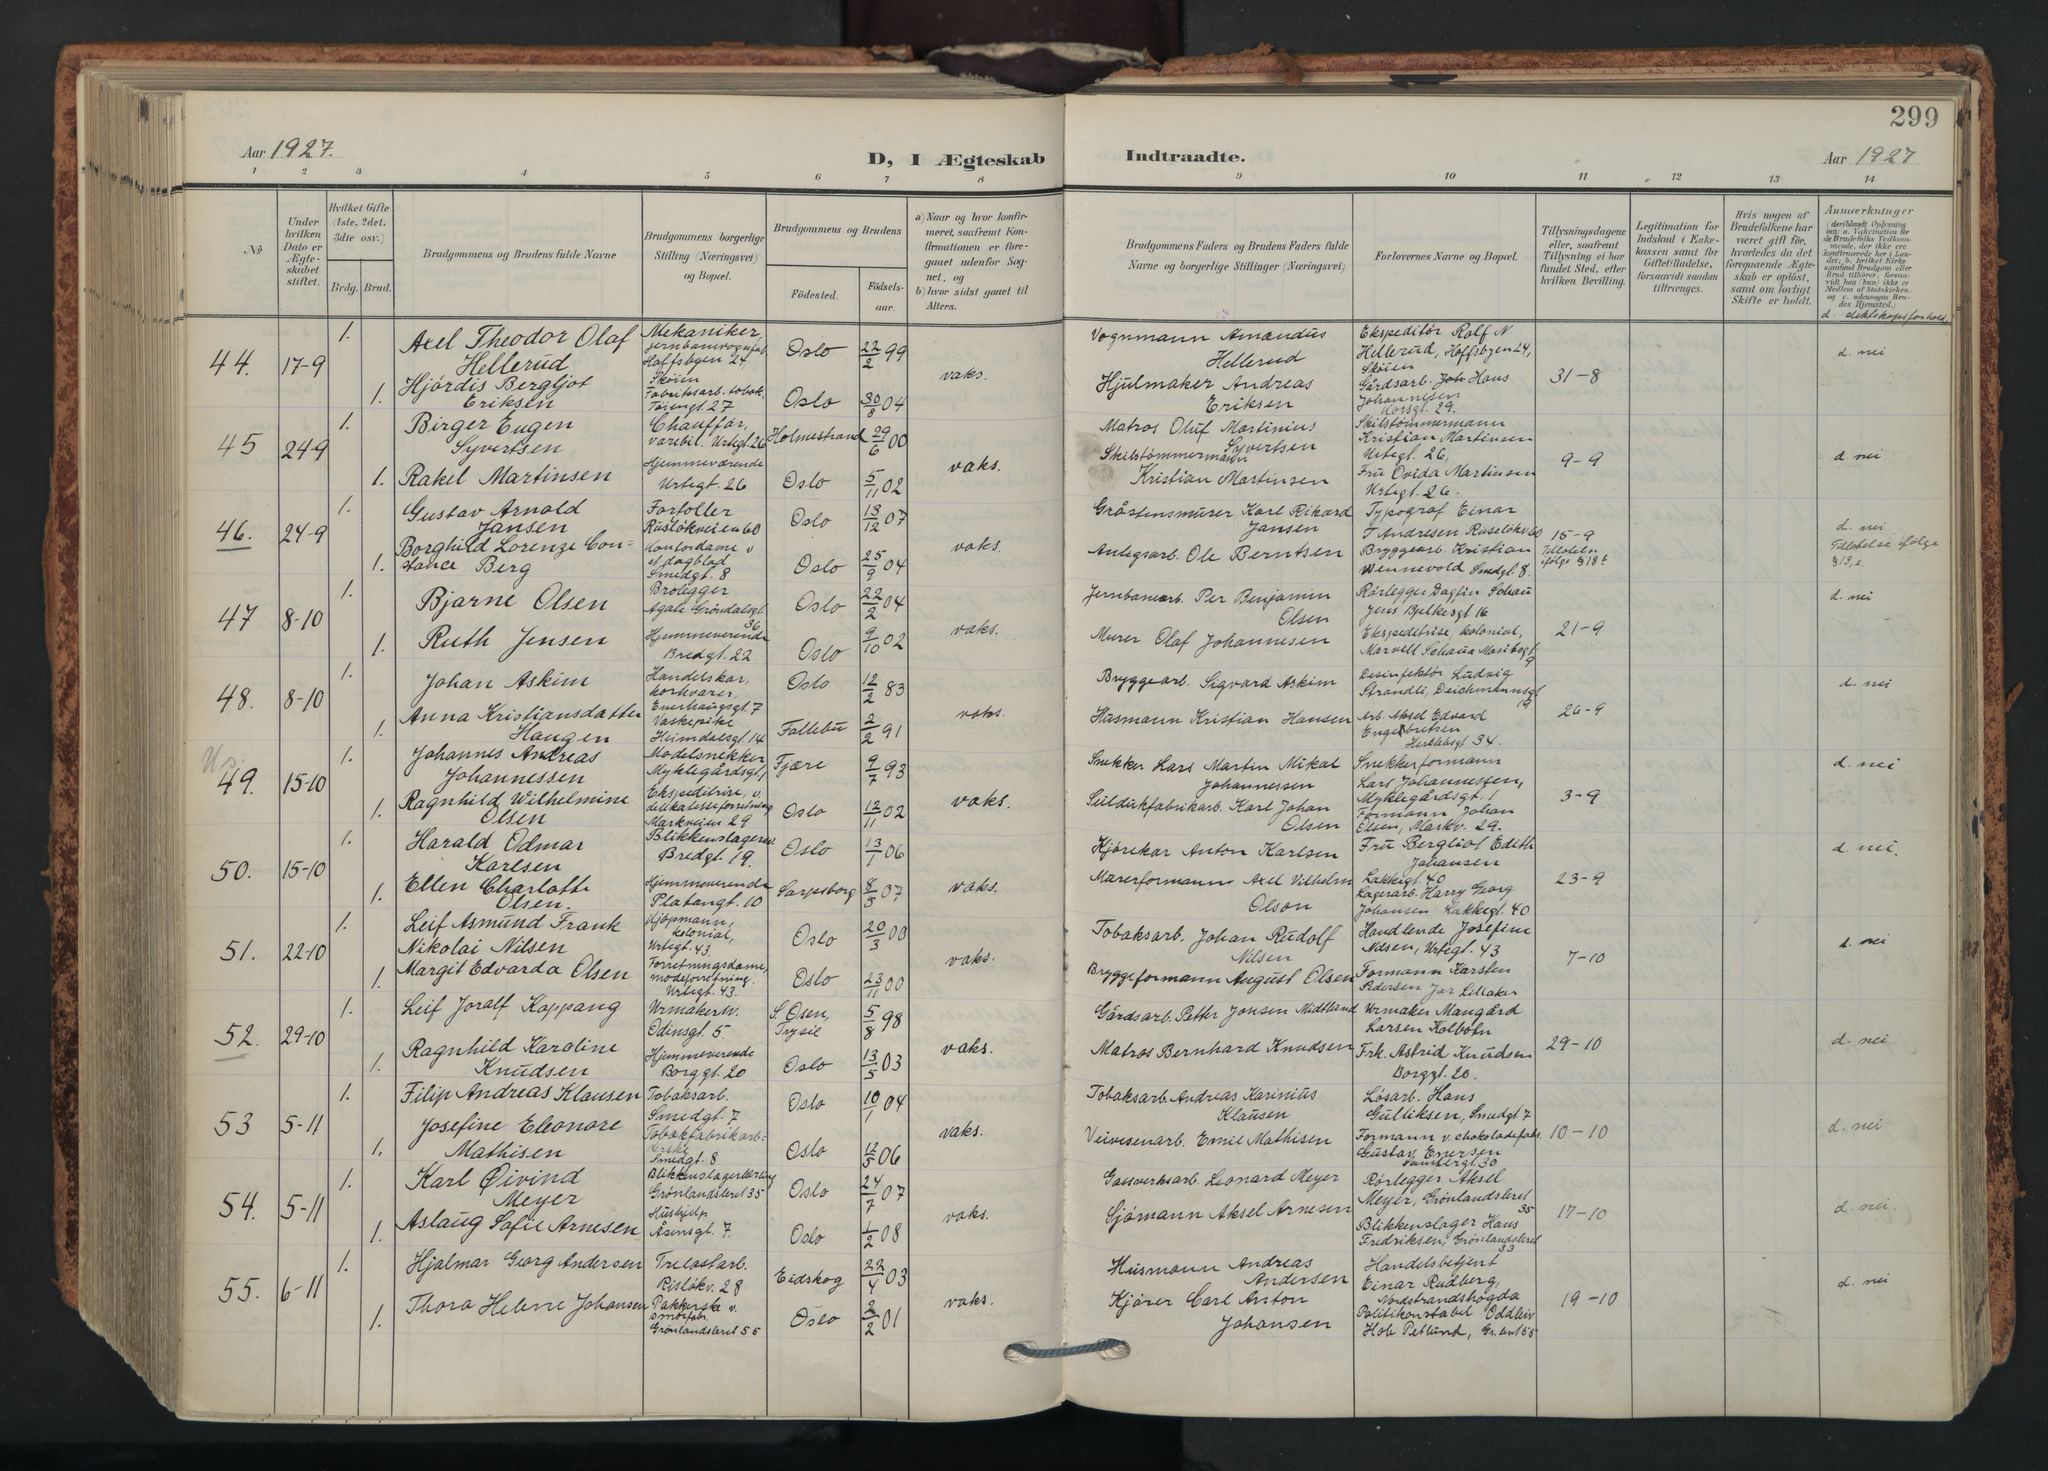 299
Aar 1927.
D, I Ægteskab
Indtraadte.
Aar 1927
1 2 3 4 5 6 7 8 9 10 11 12 13 14
No
Under hvilken Dato er Ægteskabet stiftet.
Hvilket Gifte (1ste, 2det, 3die osv.)
Brdg. Brud.
Brudgommens og Brudens fulde Navne
Brudgommens borgerlige Stilling (Næringsvei) og Bopæl.
Brudgommens og Brudens
Fødested.
Fødselsaar.
a) Naar og hvor konfirmeret, saafremt Konfirmationen er foregaaet udenfor Sognet, og
b) hvor sidst gaaet til Alters.
Brudgommens Faders og Brudens Faders fulde Navne og borgerlige Stillinger (Næringsvei)
Forlovernes Navne og Bopæl.
Tillysningsdagene eller, saafremt Tillysning ei har fundet Sted, efter hvilken Bevilling.
Legitimation for Indskud i Enkekassen samt for Giftetilladelse, forsaavidt saadan tiltrænges.
Hvis nogen af Brudefolkene har været gift før, hvorledes da det foregaaende Ægteskab er opløst, samt om lovligt Skifte er holdt.
Anmærkninger
d. slektskapsforhold
44. 17-9
1. Axel Theodor Olaf
Hellerud
Mekaniker,
Hoffsbgen 24,
Skøien
Oslo 22/2 99
vaks.
Vognmann Amandus
Hellerud
Ekspeditør Rolf N
Hellerud, Hoffsbgen 24,
Skøien
31-8
d. nei
1. Hjørdis Bergljot
Eriksen
Fabriksarb. tobak.
Tøiengt. 27
Oslo 30/8 04
Hjulmaker Andreas
Eriksen
Gårdsarb. Hans
Johannesen
Korsgt. 29.
45 24-9
1. Birger Eugen
Syvertsen
Chauffør,
varebil. Urtegt 26
Holmestrand 29/6 00
vaks.
Matros Oluf Martinius
Syvertsen
Skibstømmermann
Kristian Martinsen
Urtegt 26,
9-9
d nei
1. Rakel Martinsen
Hjemmeværende
Urtegt. 26
Oslo 5/11 02
Skibstømmermann
Kristian Martinsen
Fru Ovida Martinsen
Urtegt. 26.
46. 24-9
1. Gustav Arnold
Jansen
Fortoller
Ruslökveien 60
Oslo 13/12 07
vaks.
Gråstensmurer Karl Rikard
Jansen
Typograf Einar
T Andresen
15-9
d. nei
1. Borghild Lorenze Con-
stance Berg
Kontordame v
et dagblad
Smedgt. 8
Oslo 25/9 04
Anlegsarb. Ole Berntsen
Bryggearb. Kristian
Wennevold Smedgt 8.
Tillatelse ifølge
47 8-10
1. Bjarne Olsen
Brolegger
Agate Grøndalsgt.
36
Oslo 22/2 04
vaks.
Jernbanearb. Per Benjamin
Olsen
Rørlegger Dagfin Schau
Jens Bjelkesgt 16
21-9
d. nei
1. Ruth Jensen
Hjemmeverende
Bredgt. 22
Oslo 9/10 02
Murer Olaf Johannesen
Ekspeditrise, kolonial,
48. 8-10
1. Johan Askim
Handelskar,
kortvarer,
Enerhaugsgt. 7
Oslo 12/2 83
vaks.
Bryggearb. Sigvard Askim
Desinfektør Ludvig
Strandli, Deichmannsgt
19
26-9
d. nei
1. Anna Kristiansdatter
Haugen
Vaskepike
Heimdalsgt. 14
Follebu 2/2 91
Husmann Kristian Hansen
Arb. Aksel Edvard
Engebretsen
Herslebsgt 34.
49. 15-10
1. Johannes Andreas
Johannessen
Modelsnekker
Myklegårdsgt, 1
Fjære 9/7 93
vaks.
Snekker Lars Martin Mikal
Johannessen
Snekkerformann
Lars Johannessen,
Myklegårdsgt. 1
3-9
d. nei
1. Ragnhild Wilhelmine
Olsen
Ekspeditrise, v.
delikatesseforretning
Markveien 29
Oslo 12/11 02
Seildukfabrikarb. Karl Johan
Olsen
Formann Johan
Olsen, Markv. 29.
50. 15-10
1. Harald Odmar
Karlsen
Blikkenslagersv.
Bredgt. 19.
Oslo 13/1 06
vaks.
Kjørekar Anton Karlsen
Fru Bergliot Edith
Johansen
Lakkegt. 40
23-9
d. nei.
1. Ellen Charlotte
Olsen.
Hjemmeverende
Platangt. 10
Sarpsborg 8/5 07
Murerformann Axel Vilhelm
Olson
Lagerarb. Harry Georg
Johansen Lakkegt. 40
51. 22-10
1. Leif Asmund Frank
Nikolai Nilsen
Kjøpmann,
kolonial,
Urtegt. 43.
Oslo 20/3 00
vaks.
Tobaksarb. Johan Rudolf
Nilsen
Handlende Josefine
Nilsen, Urtegt. 43
7-10
d. nei
1. Margit Edvarda Olsen
Forretningsdame,
moteforretning.
Urtegt. 43.
Oslo 23/11 00
Bryggeformann August Olsen
Formann Karsten
Pedersen Jar Lillaker
52. 29-10
1. Leif Joralf Koppang
Urmakersv.
Odinsgt. 5
S. Osen,
Trysil
5/8 98
vaks.
Gårdsarb. Petter Jonsen Midtlund
Urmaker Mangård
Larsen Kolbotn
29-10
d. nei
1. Ragnhild Karoline
Knudsen
Hjemmeverende
Borggt. 20
Oslo 13/5 03
Matros Bernhard Knudsen
Frk. Astrid Knudsen
Borggt. 20.
53 5-11
1. Filip Andreas Klausen
Tobaksarb.
Smedgt. 7
Oslo 10/1 04
vaks.
Tobaksarb. Andreas Karinius
Klausen
Løsarb. Hans
Gulliksen, Smedgt 7
10-10
d. nei
1. Josefine Eleonore
Mathisen
Tobakfabrikarb-
erske
Smedgt. 8
Oslo 12/5 06
Veivesenarb. Emil Mathisen
Formann v. chokoladefabr.
Gustav Enersen
54. 5-11
1. Karl Øivind
Meyer
Blikkenslagerlærling
Grønlandsleret 35
Oslo 24/7 07
vaks.
Gassverksarb. Leonard Meyer
Rørlegger Aksel
Meyer, Grønlandsleret
35
17-10
d. nei.
1. Aslaug Sofie Arnesen
Hushjelp
Åsensgt. 7.
Oslo 1/2 08
Sjømann Aksel Arnesen
Blikkenslager Hans
Fredriksen, Grønlandsleret
33
55. 6-11
1. Hjalmar Georg Andersen
Trelastarb.
Rislökv. 28
Eidskog 22/4 03
vaks.
Husmann Andreas
Andersen
Handelsbetjent
Einar Rudberg,
Nordstrandshøgda
19-10
d. nei
1. Thora Helene Johansen
Pakkerske v.
smørfabr.
Grønlandsleret 55
Oslo 2/2 01
Kjører Carl Anton
Johansen
Politikonstabel Oddleiv